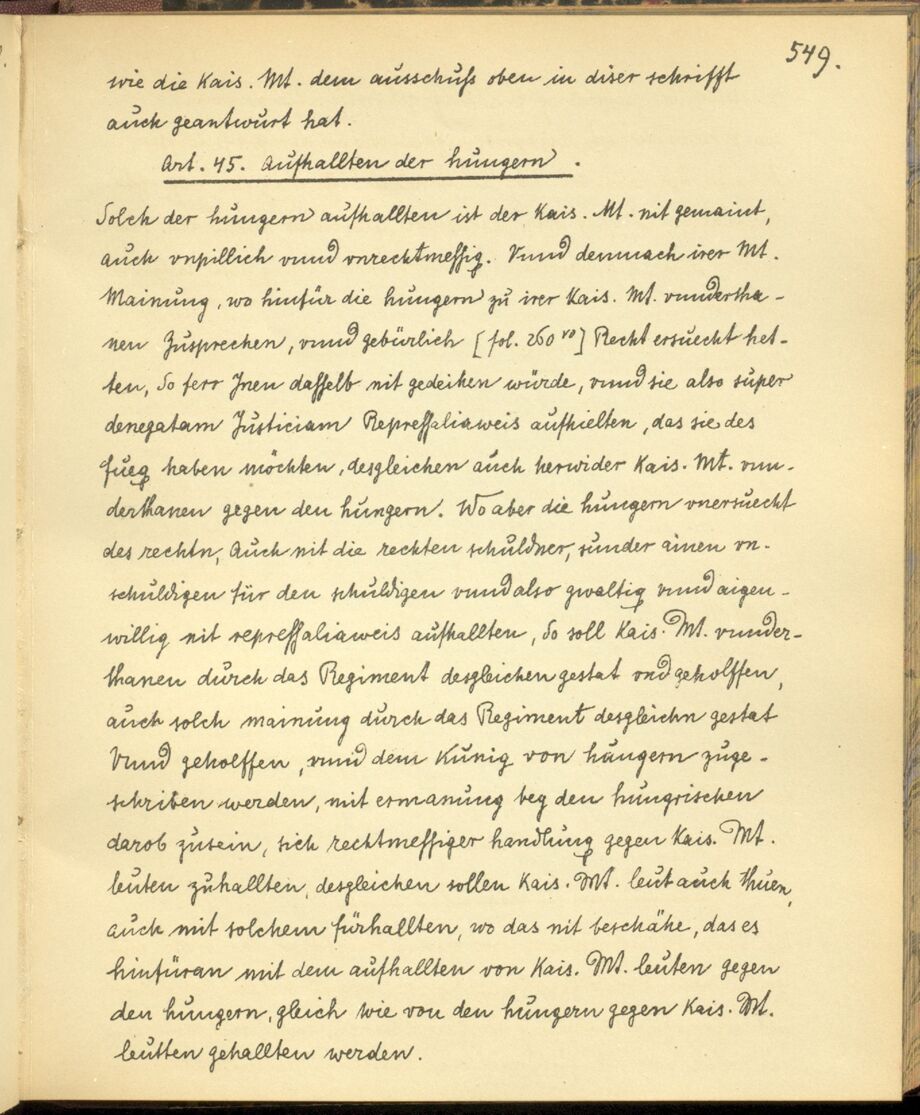 549.
wie die Kais. Mt. dem ausschuſs oben in diser schrifft
auch geantwurt hat.
Art. 45. Aufhallten der hungern.
Solch der hungern aufhallten ist der Kais. Mt. nit gemaint,
auch vnpillich vnnd vnrechtmeſſig. Vnnd demnach irer Mt.
Mainung, wo hinfür die hungern zu irer Kais. Mt. vnndertha-
nen Zusprechen, vnnd gebürlich [fol. 260 ro] Recht ersuecht het-
ten, So ferr Jnen daſſelb nit gedeihen würde, vnnd sie also super
denegatam Justiciam Repreſſaliaweis aufhielten, das sie des
fueg haben möchten, desgleichen auch herwider Kais. Mt. vnn-
derthanen gegen den hungern. Wo aber die hungern vnersuecht
des rechtn, Auch nit die rechten schuldner, sunder ainen vn-
schuldigen für den schuldigen vnnd also gwaltig vnnd aigen-
willig nit repreſſaliaweis aufhallten, So soll Kais. Mt. vnnder-
thanen durch das Regiment desgleichen gestat vnd geholffen,
auch solch mainung durch das Regiment desgleichn gestat
Vnnd geholffen, vnnd dem Künig von hungern zuge-
schriben werden, mit ermanung bey den hungrischen
darob zusein, sich rechtmeſſiger handlung gegen Kais. Mt.
leuten zuhallten, desgleichen sollen Kais. Mt. leut auch thuen,
Auch mit solchem fürhallten, wo das nit beschähe, das es
hinfüran mit dem aufhallten von Kais. Mt. leuten gegen
den hungern, gleich wie von den hungern gegen Kais. Mt.
leutten gehallten werden.